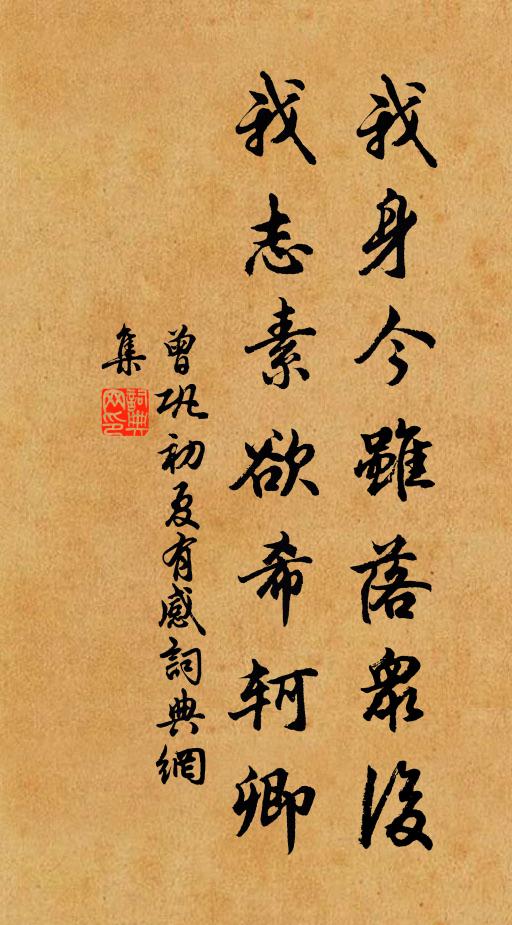 我身今雖落衆後
我志素欲希軻卿
曾巩初夏有感詞典網
集
詞典
网印